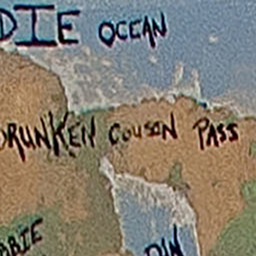 DIE OCEAN
DRUNKEN COUSON PASS
BBIE
DIN